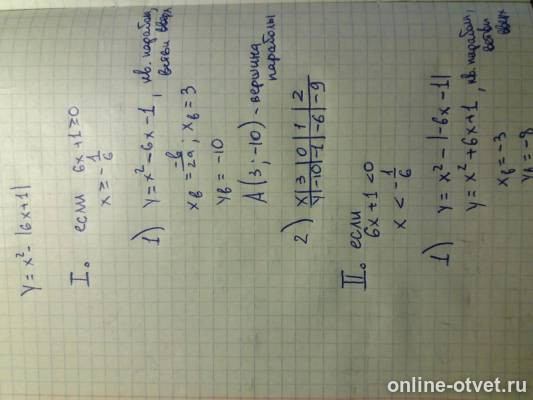 y = x² - |6x+1|
I. если 6x+1≥0
x ≥ -1/6
1) y = x² - 6x - 1, кв. парабола,
ветви вверх
xв = -в/2a ; xв = 3
yв = -10
A (3; -10) - вершина
параболы
2) x | 3 | 0 | 1 | 2
y | -10 | -1 | -6 | -9
II. если
6x+1 < 0
x < -1/6
1) y = x² - |-6x-1|
y = x² + 6x + 1, кв. парабола,
ветви
вверх
xв = -3
yв = -8
online-otvet.ru